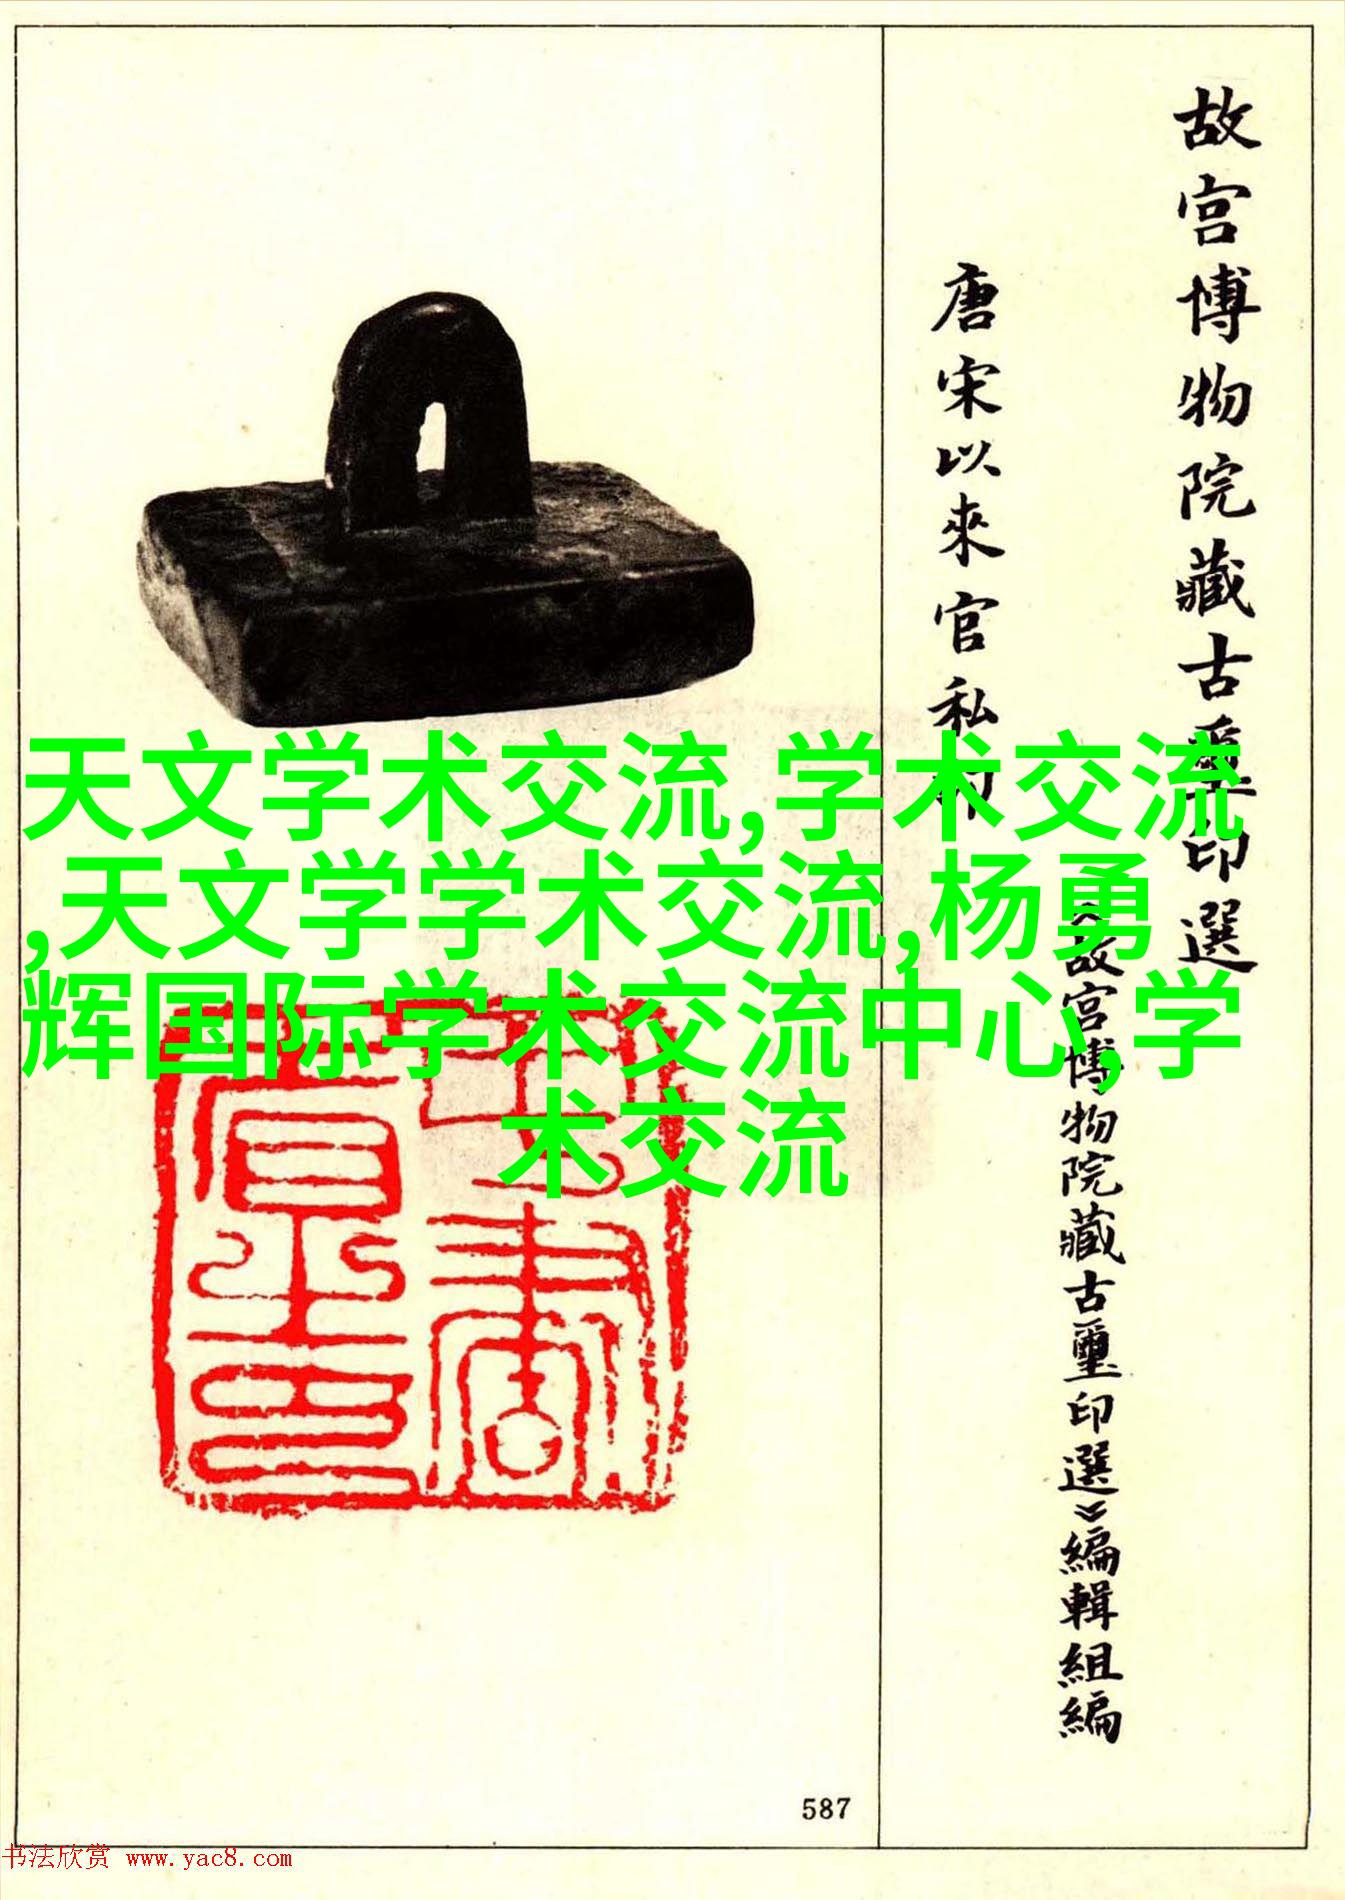 故宮博物院藏古璽印選
《故宮博物院藏古璽印選》編輯組編
唐宋以來官私印
天文学术交流,学术交流
,天文学学术交流,杨勇
辉国际学术交流中心,学
术交流
587
书法欣赏 www.yac8.com